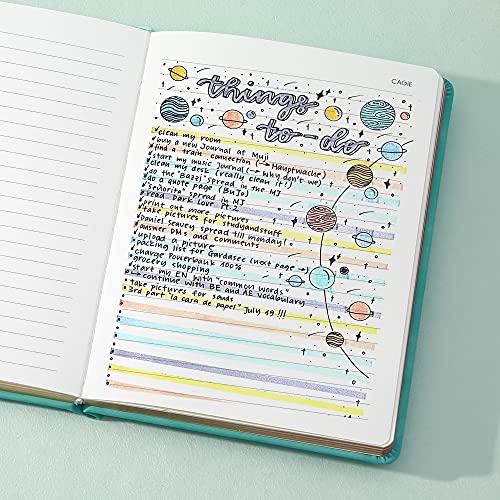 CAGIE
things
to-do
clean my room
buy a new Journal at Muji
find a train connection (→ Hauptwache)
start my music Journal (→ Why don't we)
clean my desk (really clean it!)
do the "Bazzi" spread in the MJ
do a quote page (BuJo)
"señorita" spread in MJ
read Dark Love Pt. 2
print out more pictures
take pictures for studyandstuff
Daniel Seavey spread till monday!
answer DMs and comments
upload a picture
packing list for Gardasee (next page →)
charge Powerbank 100%
grocery shopping
start my EN with "common words"
→ continue with BE and AE vocabulary
take pictures for sands
3rd part "la casa de papel" July 19 !!!